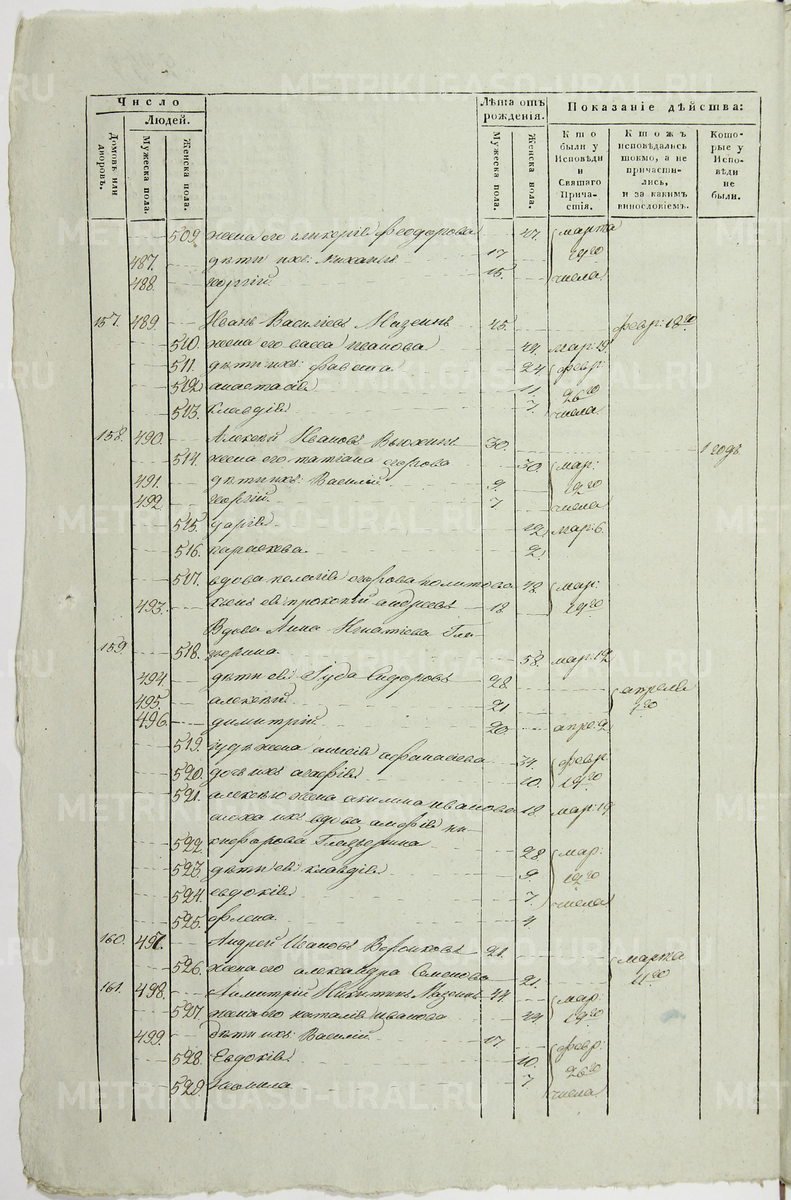 Число
Людей.
Домовъ или дворовъ.
Мужеска пола.
Женска пола.
Лѣта отъ рожденія.
Мужеска пола.
Женска пола.
Показаніе дѣйства:
Кто были у Исповѣди и Святаго Причастія.
Ктожъ исповѣдались токмо, а не причастились, и за какимъ винословіемъ.
Которые у Исповѣди не были.
509. жена его гликерія феодорова 47. марта
487. дѣти ихъ: Михаилъ 17 19го
488. георгій 15. числа
157. 489. Иванъ Васильевъ Мазеинъ 45. февр: 18го
510. жена его васса иванова 44. мар: 19
511. дѣти ихъ: 24 февр:
512. анастасія 11. 26го
513. клавдія 7. числа
158. 490. Алексѣй Ивановъ 30. 1 годъ
514. жена его татіана егорова 30. мар:
491. дѣти ихъ: Василій 9 19го
492. георгій 7 числа
515. дарія 12 мар: 6.
516. параскева. 2.
517. вдова пелагія егорова 42 мар:
493. сынъ ея прокопій андреевъ 18 19го
Вдова Анна Игнатіева Гла-
159. 518. зырина 58. мар: 12
494 дѣти ея: Іуда Сидоровъ 28
495. алексѣй 21 апреля
496. димитрій 20. апре: 2
519. іуды жена анисія афанасьева 34. февр:
520. дочь ихъ агафія 10. 19го
521. алексѣю жена акилина иванова 18 мар: 19
сноха ихъ вдова ни-
522. кифорова Глазырина 28 мар:
523. дѣти ея: клавдія 9 19го
524. евдокія 7. числа
525. 4.
160. 497. Андрей Ивановъ 21. марта
526. жена его александра Семенова 21.
161. 498. Димитрій Никитинъ Мазеинъ 44 мар.
527. жена его наталія иванова 44 19го
499. дѣти ихъ: Василій 17. февр:
528. Евдокія 10. 26го
529. 7 числа
METRIKI.GASO-URAL.RU